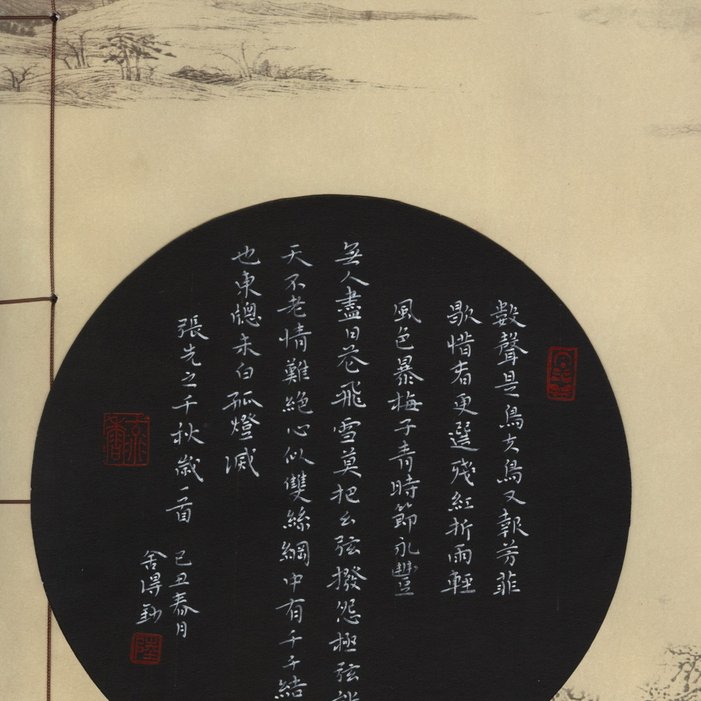 數聲鶗鴂又報芳菲
歇惜春更選殘紅折雨輕
風色暴梅子青時節永豐
無人盡日花飛雪莫把幺弦撥怨極弦
天不老情難絕心似雙絲網中有千千結
也東牕未白孤燈滅
張先之千秋歲一首
己丑春月
舍得